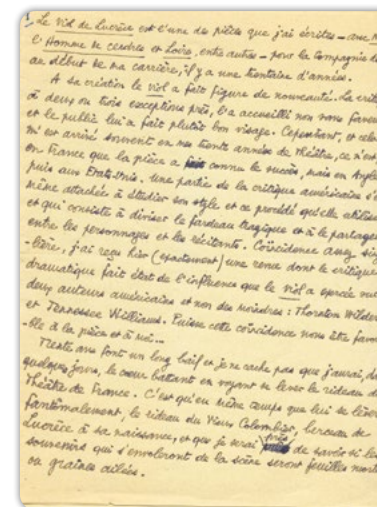 1 Le Viol de Lucrèce est l'une des pièces que j'ai écrites – avec N
l'Homme de cendres et Loire, entre autres – pour la Compagnie de
au début de ma carrière, il y a une trentaine d'années.
A sa création le Viol a fait figure de nouveauté. La criti
à deux ou trois exceptions près, l'a accueilli non sans faveur
et le public lui a fait plutôt bon visage. Cependant, et cela
m'est arrivé souvent en mes trente années de théâtre, ce n'est
en France que la pièce a connu le succès, mais en Angle
puis aux Etats-Unis. Une partie de la critique américaine s'e
même attachée à étudier son style et ce procédé qu'elle utilise
et qui consiste à diviser le fardeau tragique et à le partager
entre les personnages et les récitants. Coïncidence assez sin
-lière, j'ai reçu hier (exactement) une revue dont le critique
dramatique fait état de l'influence que le Viol a exercée sur
deux auteurs américains et non des moindres : Thornton Wilder
et Tennessee Williams. Puisse cette coïncidence nous être favor
-ble à la pièce et à moi...
Trente ans font un long bail et je ne cache pas que j'aurai, da
quelques jours, le cœur battant en voyant se lever le rideau du
Théâtre de France. C'est qu'en même temps que lui se lèvera
fantômalement, le rideau du Vieux Colombier, berceau de
Lucrèce à sa naissance, et que je serai près de savoir si les
souvenirs qui s'envoleront de la scène seront feuilles mortes
ou graines ailées.